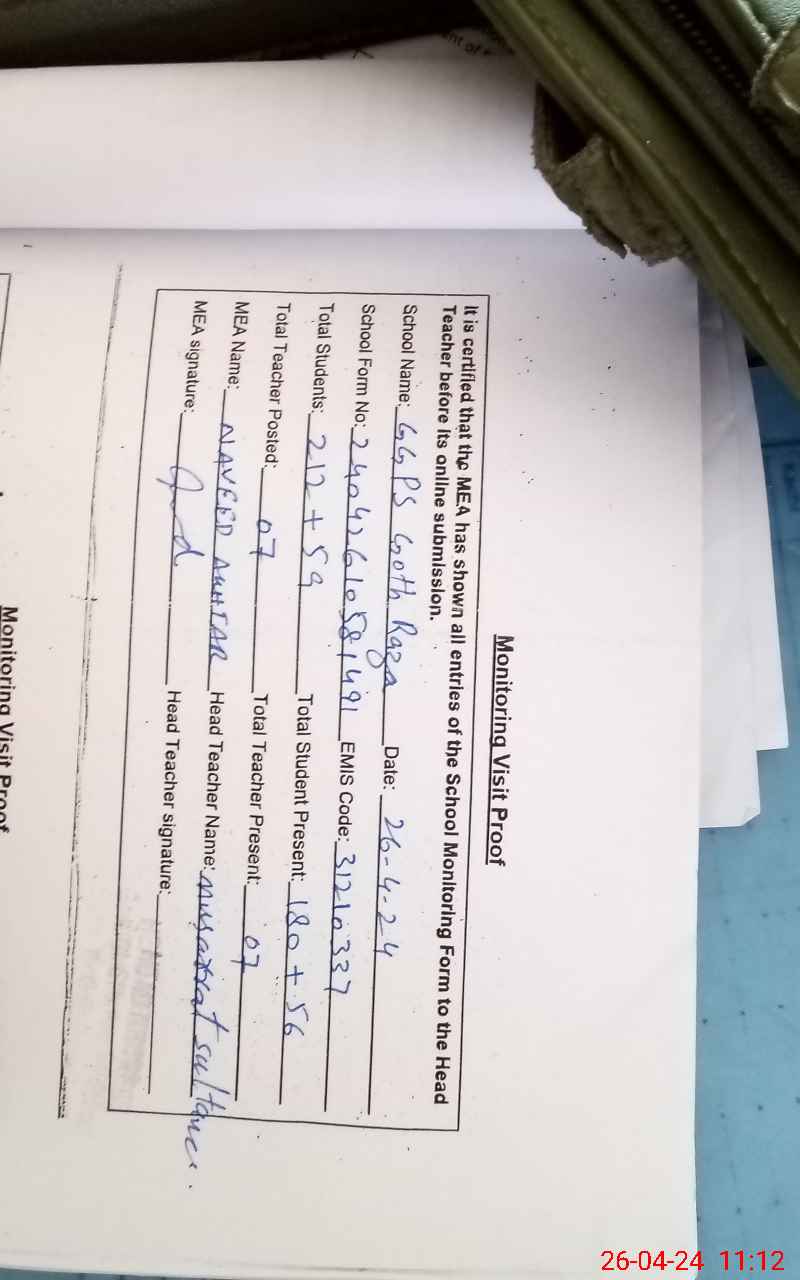 Monitoring Visit Proof
It is certified that the MEA has shown all entries of the School Monitoring Form to the Head
Teacher before its online submission.
School Name: GGPS Goth Raza Date: 26-4-24
School Form No: 24042610581491 EMIS Code: 31210337
Total Students: 212 + 59 Total Student Present: 180 + 56
Total Teacher Posted: 07 Total Teacher Present: 07
MEA Name: NAVEED AKHTAR Head Teacher Name: Musarrat Sultana
MEA signature: Head Teacher signature:
Monitoring Visit Proof
26-04-24 11:12